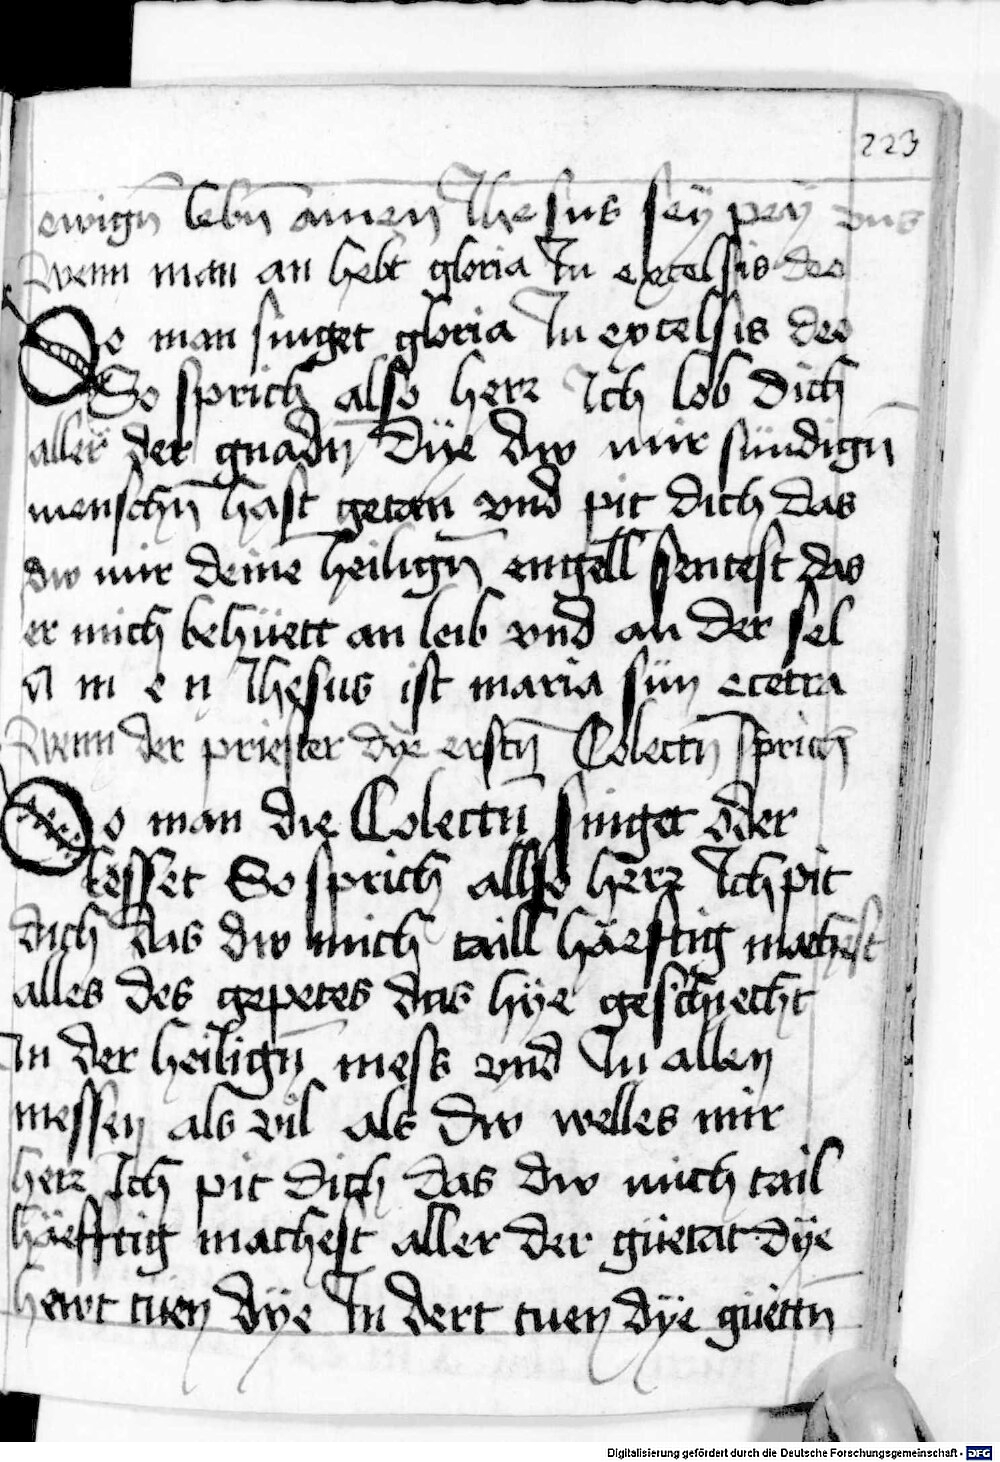 223
ewign̄ lebn̄ amen Ihesus seÿ peÿ vns
Wenn man an hebt gloria In excelsis deo
So man singet gloria In excelsis deo
So sprich also herr Ich lob dich
aller der gnadn̄ Dÿe dw mir sündign̄
menschn̄ hast getan vnd pit dich das
dw mir deine heilign̄ engell sentest das
er mich behüett an leib vnd an der sel
A m e n Ihesus ist maria sün ecetra
Wenn der priester dÿe erstn̄ Colectn̄ sprich
So man die Colectn̄ singet oder
lesset So sprich allso herr Ich pit
dich das dw mich taill häeftig machest
alles des gepetes das hÿe geschiecht
In der heilign̄ mess vnd In allen
messen als vil als dw welles mir
herr Ich pit dich das dw mich tail
häefftig machest aller der güetat dÿe
hewt tuen dÿe In dert tuen dÿe güettn̄
Digitalisierung gefördert durch die Deutsche Forschungsgemeinschaft - DFG